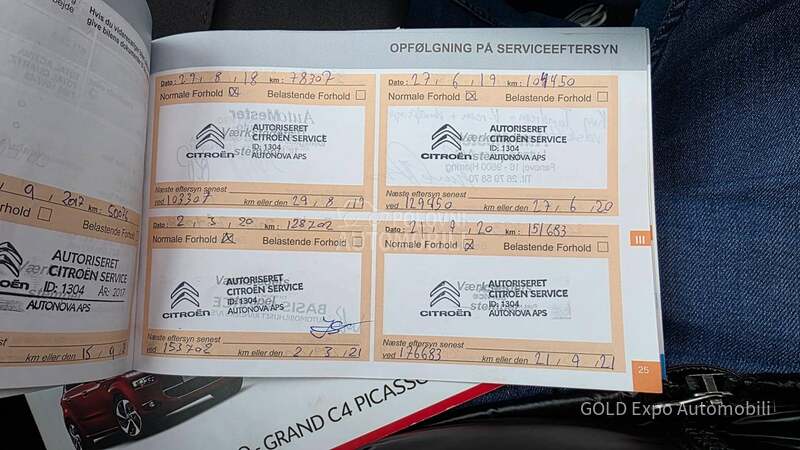 OPFØLGNING PÅ SERVICEEFTERSYN
Hvis du
give bilens
Dato: 29, 8, 18 km: 78307
Normale Forhold ☒ Belastende Forhold ☐
AUTORISERET
CITROËN SERVICE
ID: 1304
AUTONOVA APS
CITROËN
Næste eftersyn senest
ved 103307 km eller den 29, 8, 19
Dato: 27, 6, 19 km: 104450
Normale Forhold ☒ Belastende Forhold ☐
AUTORISERET
CITROËN SERVICE
ID: 1304
AUTONOVA APS
CITROËN
Næste eftersyn senest
ved 129450 km eller den 27, 6, 20
9, 2017 km:
Forhold ☒ Belastende Forhold ☐
AUTORISERET
CITROËN SERVICE
ID: 1304
AUTONOVA APS
km eller den 15, 9
2, 3, 20 km: 128702
Normale Forhold ☒ Belastende Forhold ☐
AUTORISERET
CITROËN SERVICE
ID: 1304
AUTONOVA APS
CITROËN
Næste eftersyn senest
ved 153702 km eller den 2, 3, 21
Dato: 21, 9, 20 km: 151683
Normale Forhold ☒ Belastende Forhold ☐
AUTORISERET
CITROËN SERVICE
ID: 1304
AUTONOVA APS
CITROËN
Næste eftersyn senest
ved 176683 km eller den 21, 9, 21
III
25
GRAND C4 PICASSO
GOLD Expo Automobili